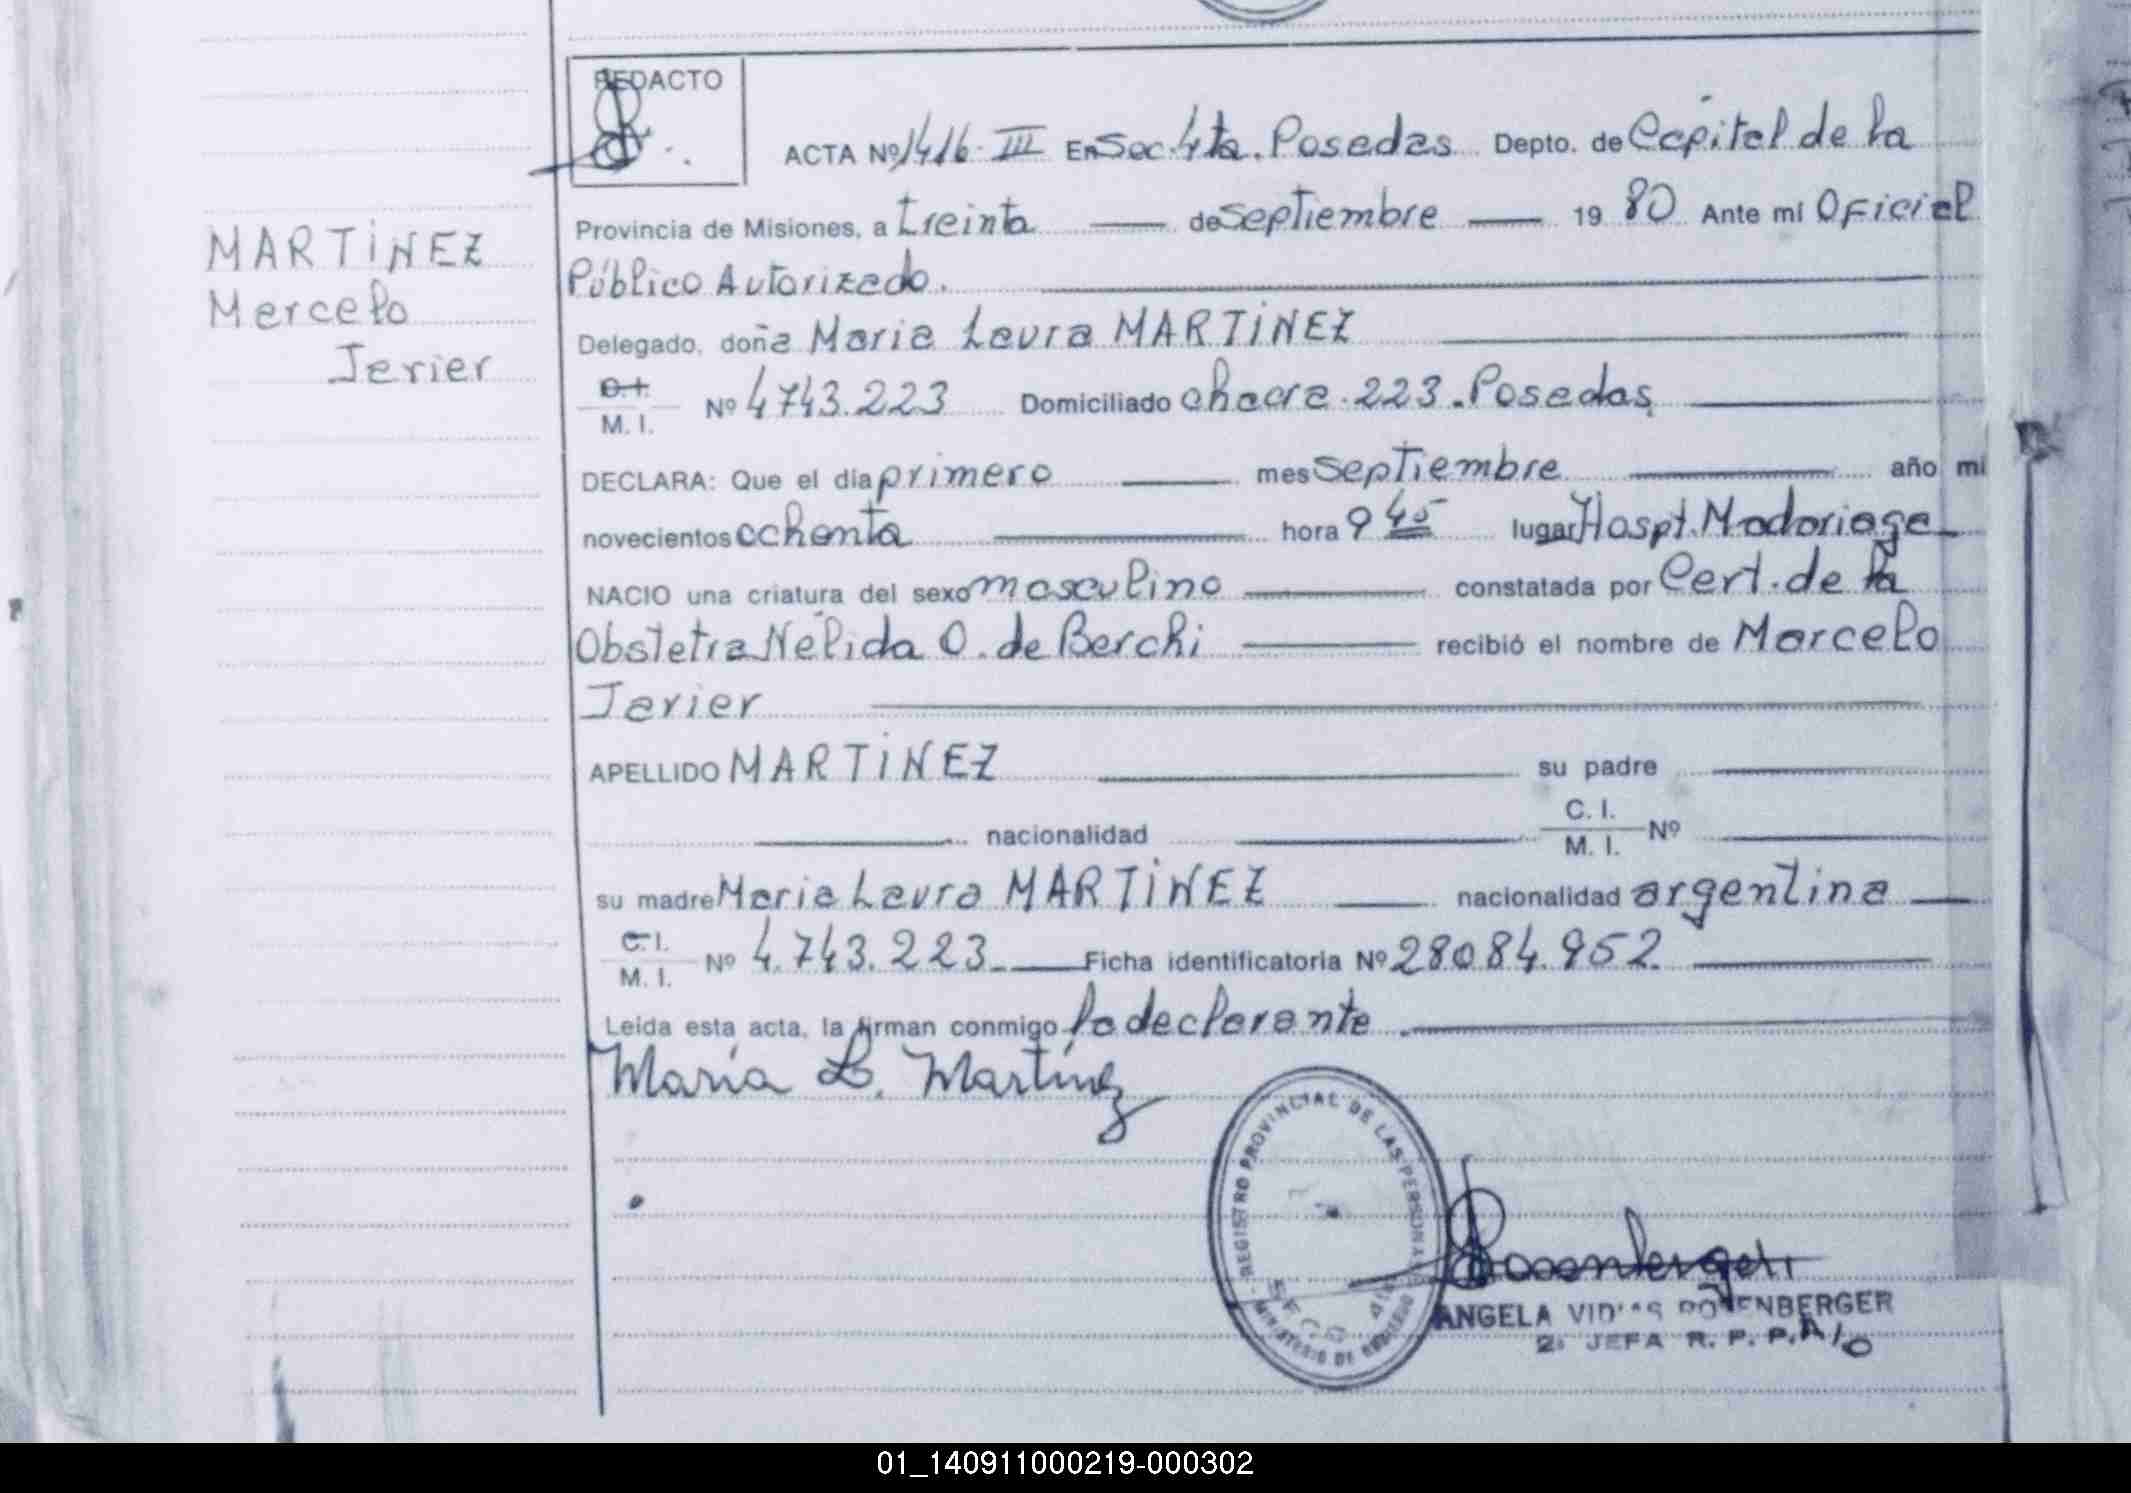 REDACTO
ACTA Nº 1416 III En Sec. 4ta. Posadas Depto. de Capital de la
Provincia de Misiones, a treinta de Septiembre 19 80 Ante mi Oficial
Público Autorizado.
MARTINEZ
Marcelo
Javier
Delegado, doña Maria Laura MARTINEZ
C.I.
M. I. Nº 4743.223 Domiciliado chacra 223. Posadas
DECLARA: Que el día primero mes Septiembre año mil
novecientos ochenta hora 9 45 lugar Hospt. Madariaga
NACIO una criatura del sexo masculino constatada por Cert. de la
Obstetra Nélida O. de Berchi recibió el nombre de Marcelo
Javier
APELLIDO MARTINEZ su padre
nacionalidad C. I.
M. I. Nº
su madre Maria Laura MARTINEZ nacionalidad argentina
C.I.
M. I. Nº 4.743.223 Ficha identificatoria Nº 28084.952
Leída esta acta, la firman conmigo la declarante
María L. Martínez
REGISTRO PROVINCIAL DE LAS PERSONAS
MINISTERIO DE GOBIERNO
ANGELA ROSENBERGER
2ª JEFA R. P. P.
01_140911000219-000302